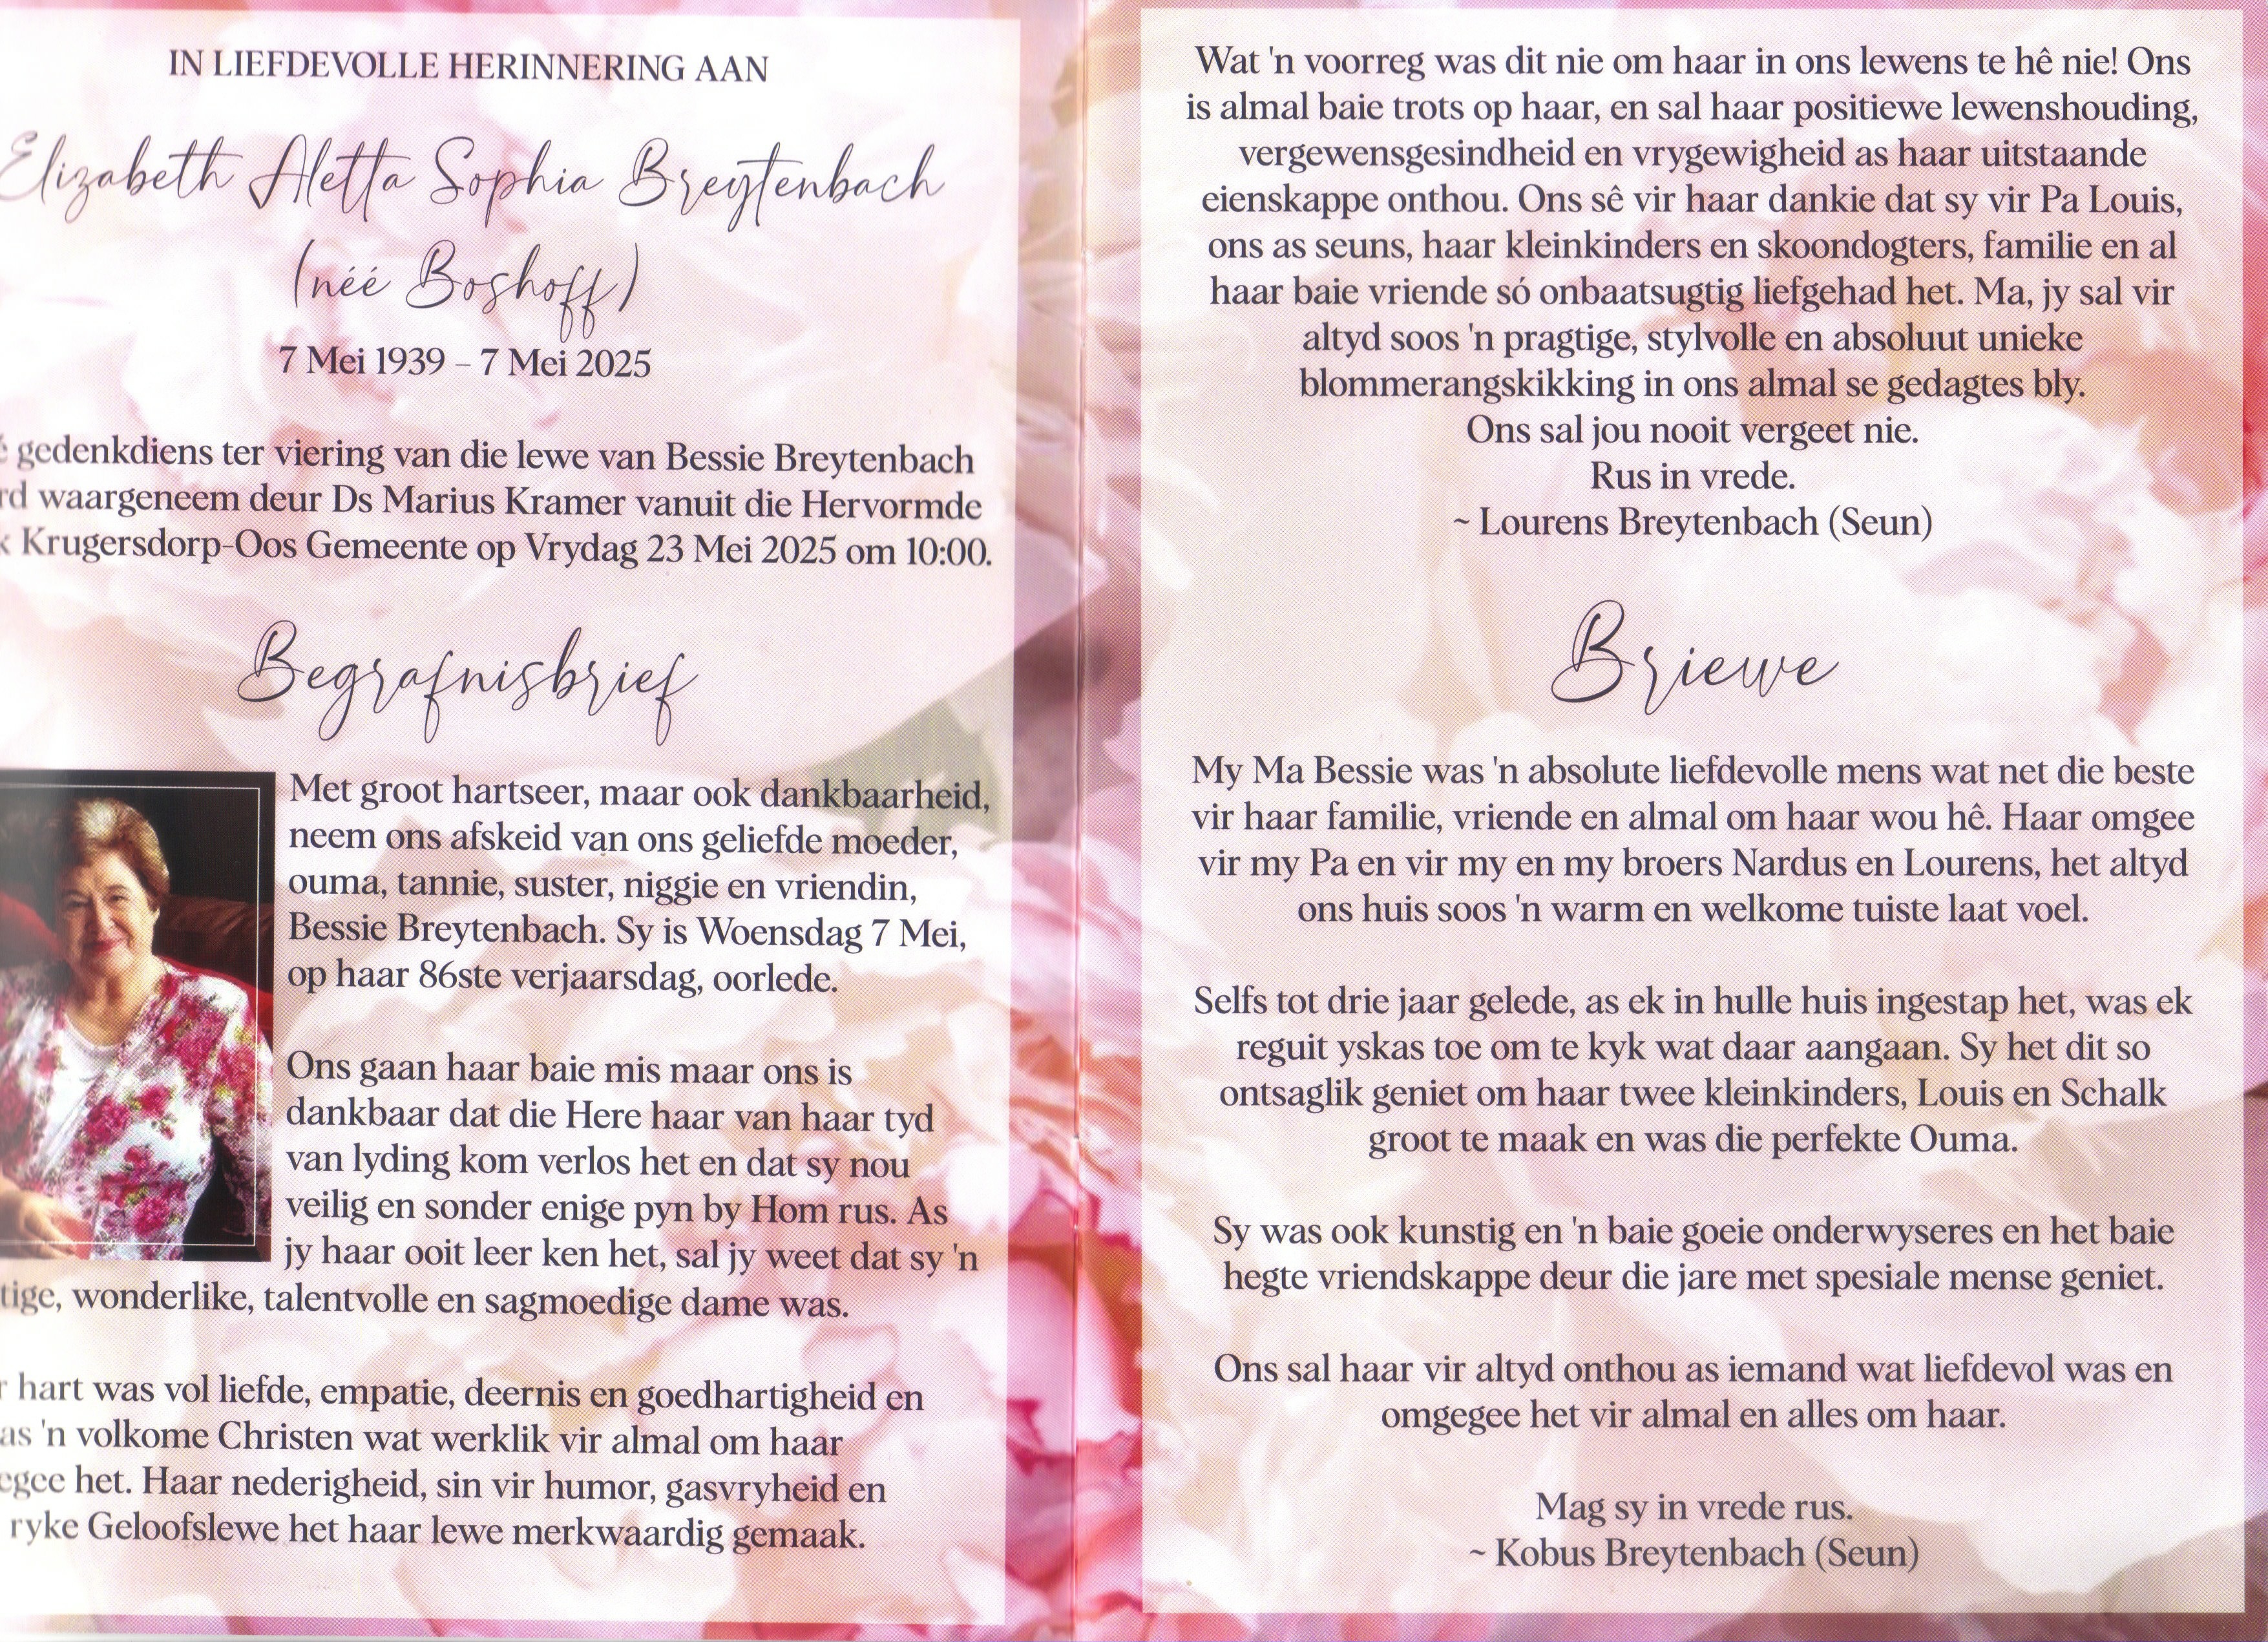 IN LIEFDEVOLLE HERINNERING AAN
Elizabeth Aletta Sophia Breytenbach
(néé Boshoff)
7 Mei 1939 – 7 Mei 2025
gedenkdiens ter viering van die lewe van Bessie Breytenbach
waargeneem deur Ds Marius Kramer vanuit die Hervormde
Krugersdorp-Oos Gemeente op Vrydag 23 Mei 2025 om 10:00.
Begrafnisbrief
Met groot hartseer, maar ook dankbaarheid,
neem ons afskeid van ons geliefde moeder,
ouma, tannie, suster, niggie en vriendin,
Bessie Breytenbach. Sy is Woensdag 7 Mei,
op haar 86ste verjaarsdag, oorlede.
Ons gaan haar baie mis maar ons is
dankbaar dat die Here haar van haar tyd
van lyding kom verlos het en dat sy nou
veilig en sonder enige pyn by Hom rus. As
jy haar ooit leer ken het, sal jy weet dat sy 'n
wonderlike, talentvolle en sagmoedige dame was.
hart was vol liefde, empatie, deernis en goedhartigheid en
'n volkome Christen wat werklik vir almal om haar
het. Haar nederigheid, sin vir humor, gasvryheid en
ryke Geloofslewe het haar lewe merkwaardig gemaak.
Wat 'n voorreg was dit nie om haar in ons lewens te hê nie! Ons
is almal baie trots op haar, en sal haar positiewe lewenshouding,
vergewensgesindheid en vrygewigheid as haar uitstaande
eienskappe onthou. Ons sê vir haar dankie dat sy vir Pa Louis,
ons as seuns, haar kleinkinders en skoondogters, familie en al
haar baie vriende só onbaatsugtig liefgehad het. Ma, jy sal vir
altyd soos 'n pragtige, stylvolle en absoluut unieke
blommerangskikking in ons almal se gedagtes bly.
Ons sal jou nooit vergeet nie.
Rus in vrede.
~ Lourens Breytenbach (Seun)
Briewe
My Ma Bessie was 'n absolute liefdevolle mens wat net die beste
vir haar familie, vriende en almal om haar wou hê. Haar omgee
vir my Pa en vir my en my broers Nardus en Lourens, het altyd
ons huis soos 'n warm en welkome tuiste laat voel.
Selfs tot drie jaar gelede, as ek in hulle huis ingestap het, was ek
reguit yskas toe om te kyk wat daar aangaan. Sy het dit so
ontsaglik geniet om haar twee kleinkinders, Louis en Schalk
groot te maak en was die perfekte Ouma.
Sy was ook kunstig en 'n baie goeie onderwyseres en het baie
hegte vriendskappe deur die jare met spesiale mense geniet.
Ons sal haar vir altyd onthou as iemand wat liefdevol was en
omgegee het vir almal en alles om haar.
Mag sy in vrede rus.
~ Kobus Breytenbach (Seun)